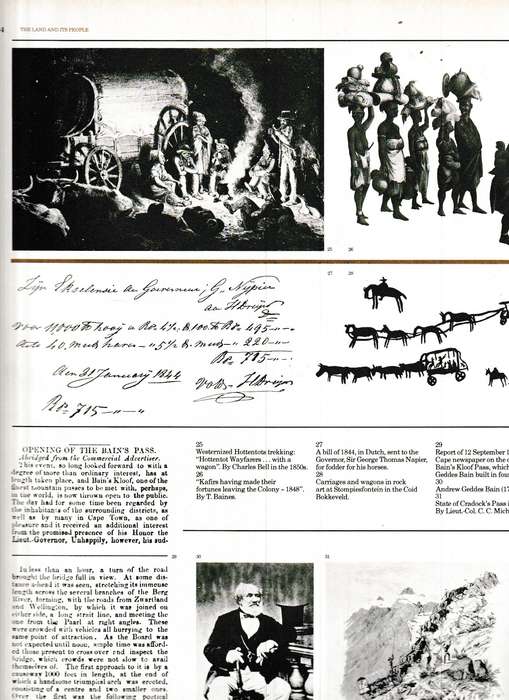 4
THE LAND AND ITS PEOPLE
25
26
27
28
Zijn Excelensie den Gouverneur, G. Napier
aan H Druijn
Voor 11000 ℔ hooij a Rds 4½ ℔ 100 ℔ Rds 495 - " -
dito 40 muds haver - " 5½ ℔ muds - " 220 - " -
Rds 715 - " -
den 31 Januarij 1844
Rds 715 - " - " -
OPENING OF THE BAIN'S PASS.
Abridged from the Commercial Advertiser.
This event, so long looked forward to with a
degree of more than ordinary interest, has at
length taken place, and Bain's Kloof, one of the
finest mountain passes to be met with, perhaps,
in the world, is now thrown open to the public.
The day had for some time been regarded by
the inhabitants of the surrounding districts, as
well as by many in Cape Town, as one of
pleasure and it received an additional interest
from the promised presence of his Honor the
Lieut.-Governor, Unhappily, however, his sud-
25
Westernized Hottentots trekking:
"Hottentot Wayfarers . . . with a
wagon". By Charles Bell in the 1850s.
26
"Kafirs having made their
fortunes leaving the Colony – 1848".
By T. Baines.
27
A bill of 1844, in Dutch, sent to the
Governor, Sir George Thomas Napier,
for fodder for his horses.
28
Carriages and wagons in rock
art at Stompiesfontein in the Coid
Bokkeveld.
29
Report of 12 September 1
Cape newspaper on the o
Bain's Kloof Pass, which
Geddes Bain built in four
30
Andrew Geddes Bain (17
31
State of Cradock's Pass i
By Lieut-Col. C. C. Mich
29
30
31
In less than an hour, a turn of the road
brought the bridge full in view. At some dis-
tance ahead it was seen, stretching its immense
length across the several branches of the Berg
River, forming, with the roads from Zwartland
and Wellington, by which it was joined on
either side, a long strait line, and meeting the
one from the Paarl at right angles. These
were crowded with vehicles all hurrying to the
same point of attraction. As the Board was
not expected until noon, ample time was afford-
ed those present to cross over and inspect the
bridge, which crowds were not slow to avail
themselves of. The first approach to it is by a
causeway 1000 feet in length, at the end of
which a handsome triumphal arch was erected,
consisting of a centre and two smaller ones.
Over the first was the following poetical